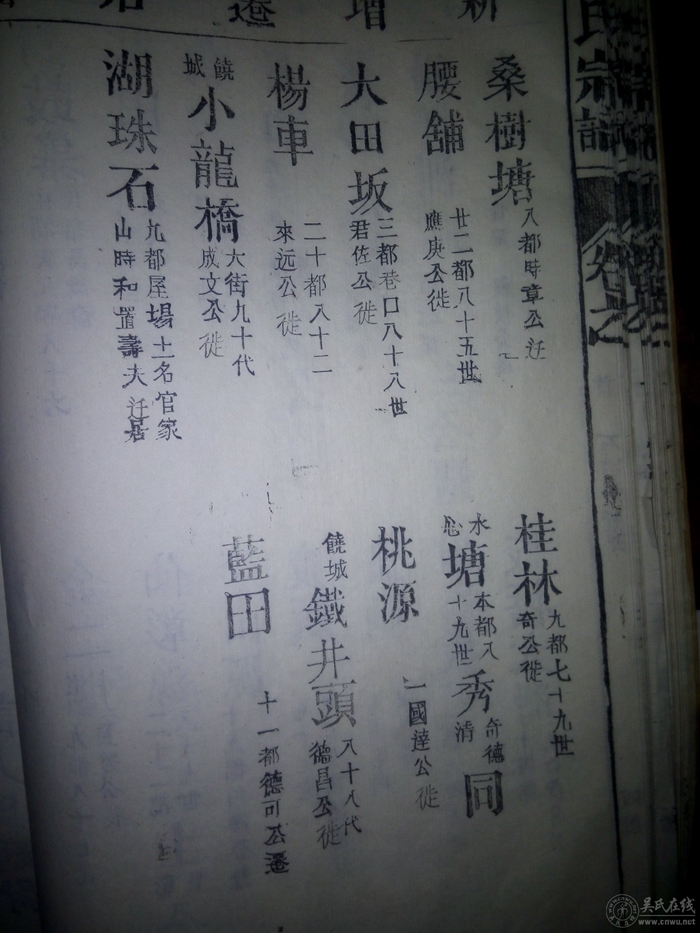 新增遷居
氏宗譜
卷之
桑樹塘 八都時章公迁
腰舖 廿二都八十五世應庚公徙
大田坂 三都巷口八十八世君佐公徙
楊車 二十都八十二來远公徙
饒城小龍橋 大街九十代成文公徙
湖珠石 九都屋場土名官家山時和置壽夫迁居
桂林 九都七十九世奇公徙
水心塘 本都八十九世秀清奇德同
桃源 一國達公徙
饒城鐵井頭 八十八代德昌公徙
藍田 十一都德可公遷
吴氏在线
www.cnwu.net